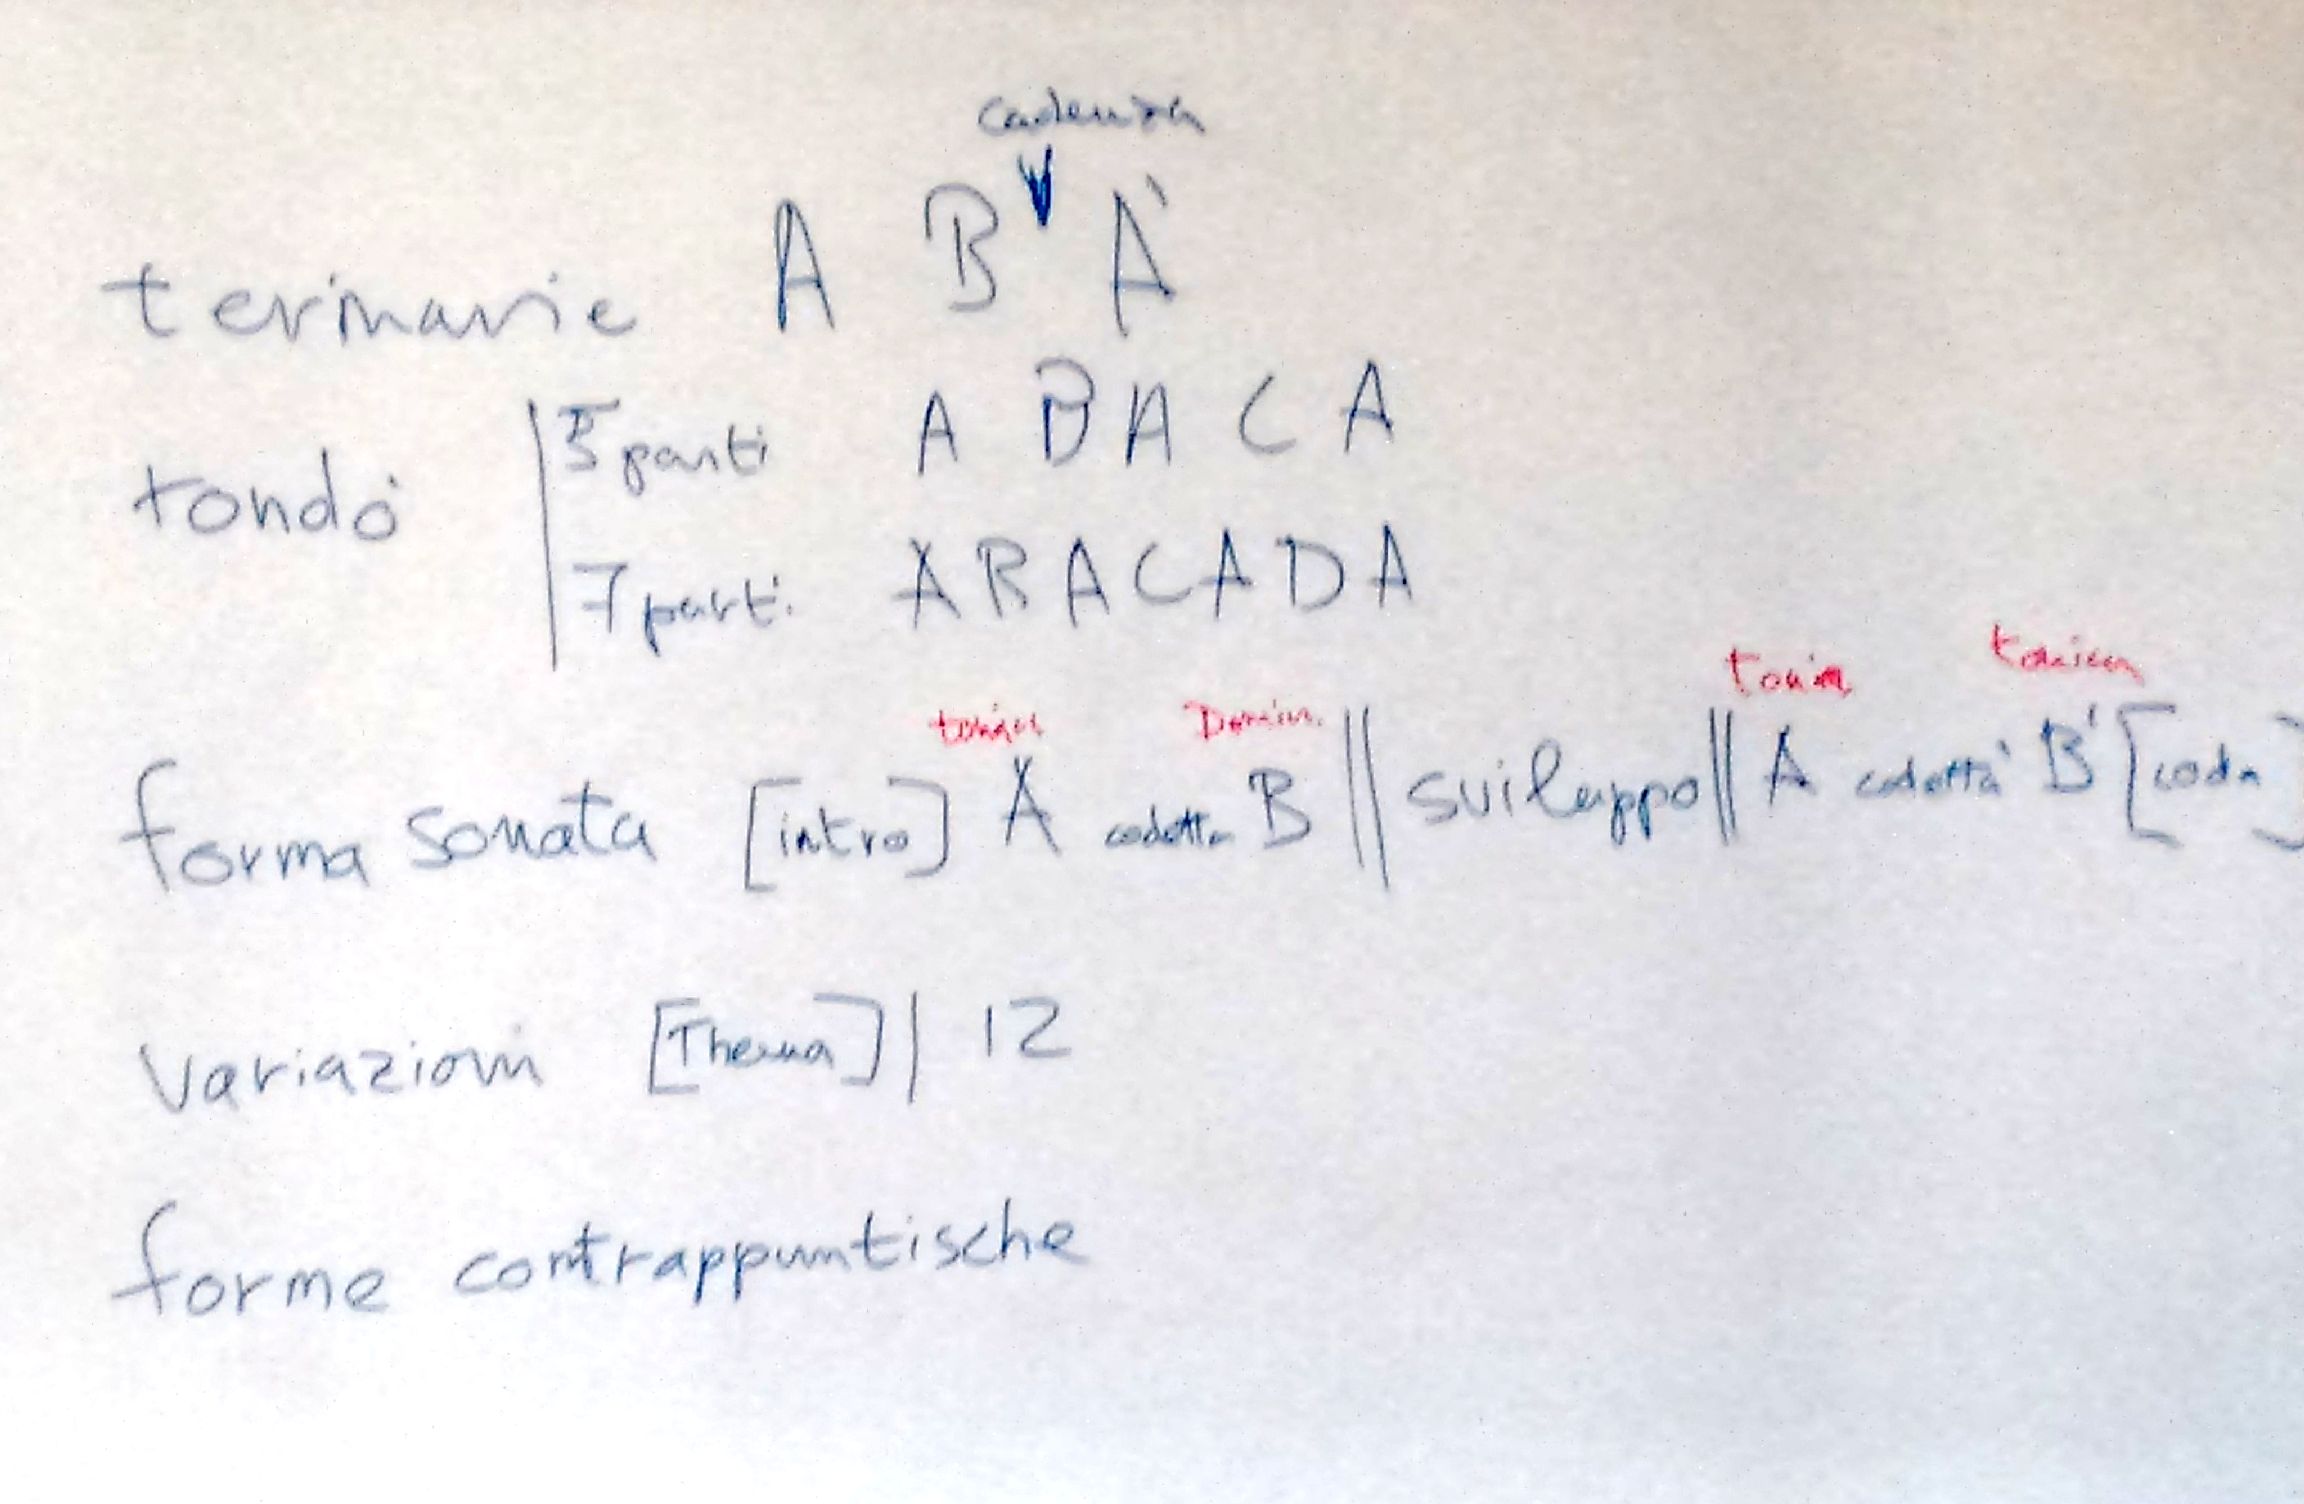 cadenza
ternarie A B A'
rondò
5 parti A B A C A
7 parti A B A C A D A
tonica Domin. tonica tonica
forma sonata [intro] A codetta B || sviluppo || A codetta' B' [coda]
variazioni [Thema] | 12
forme contrappuntische